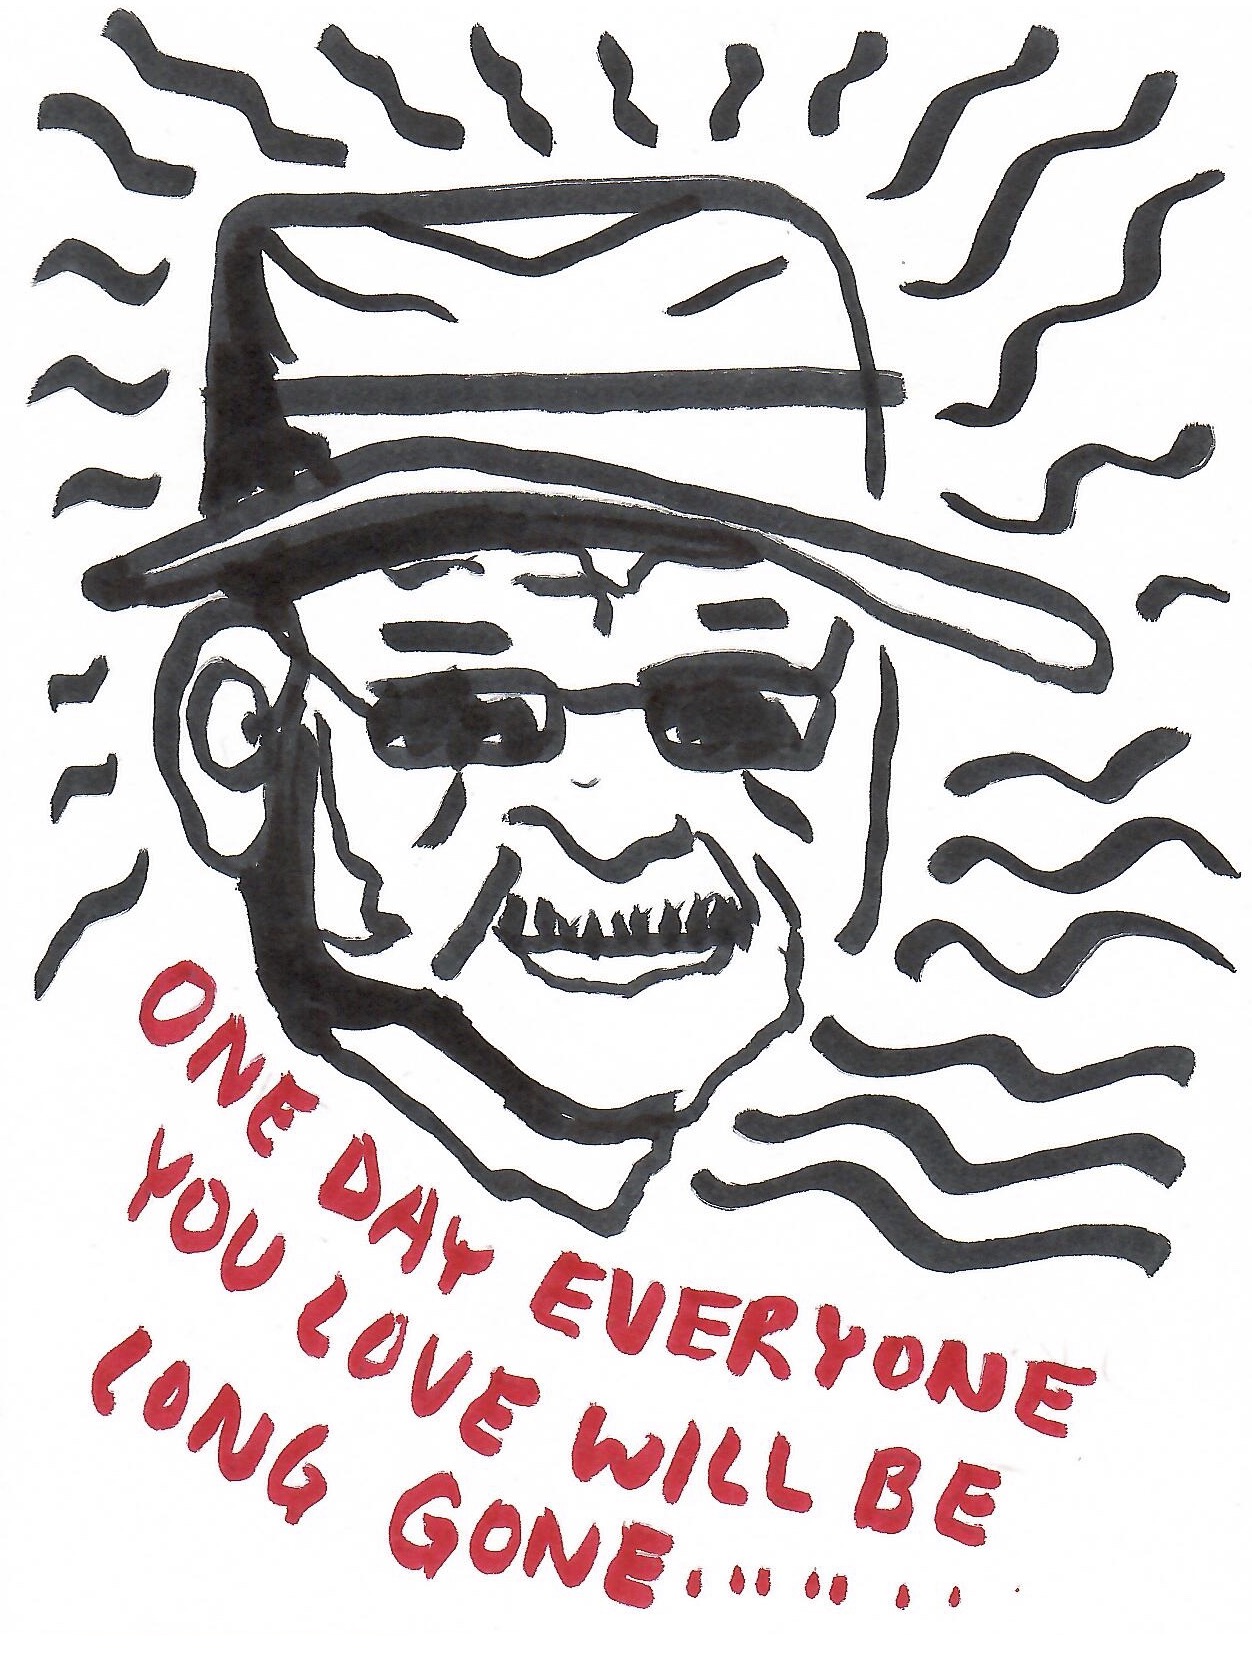 ONE DAY EVERYONE
YOU LOVE WILL BE
LONG GONE........